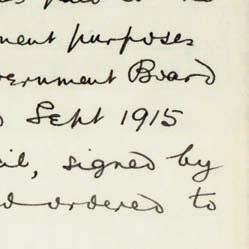 ment purposes
ernment Board
Sept 1915
cil, signed by
d ordered to